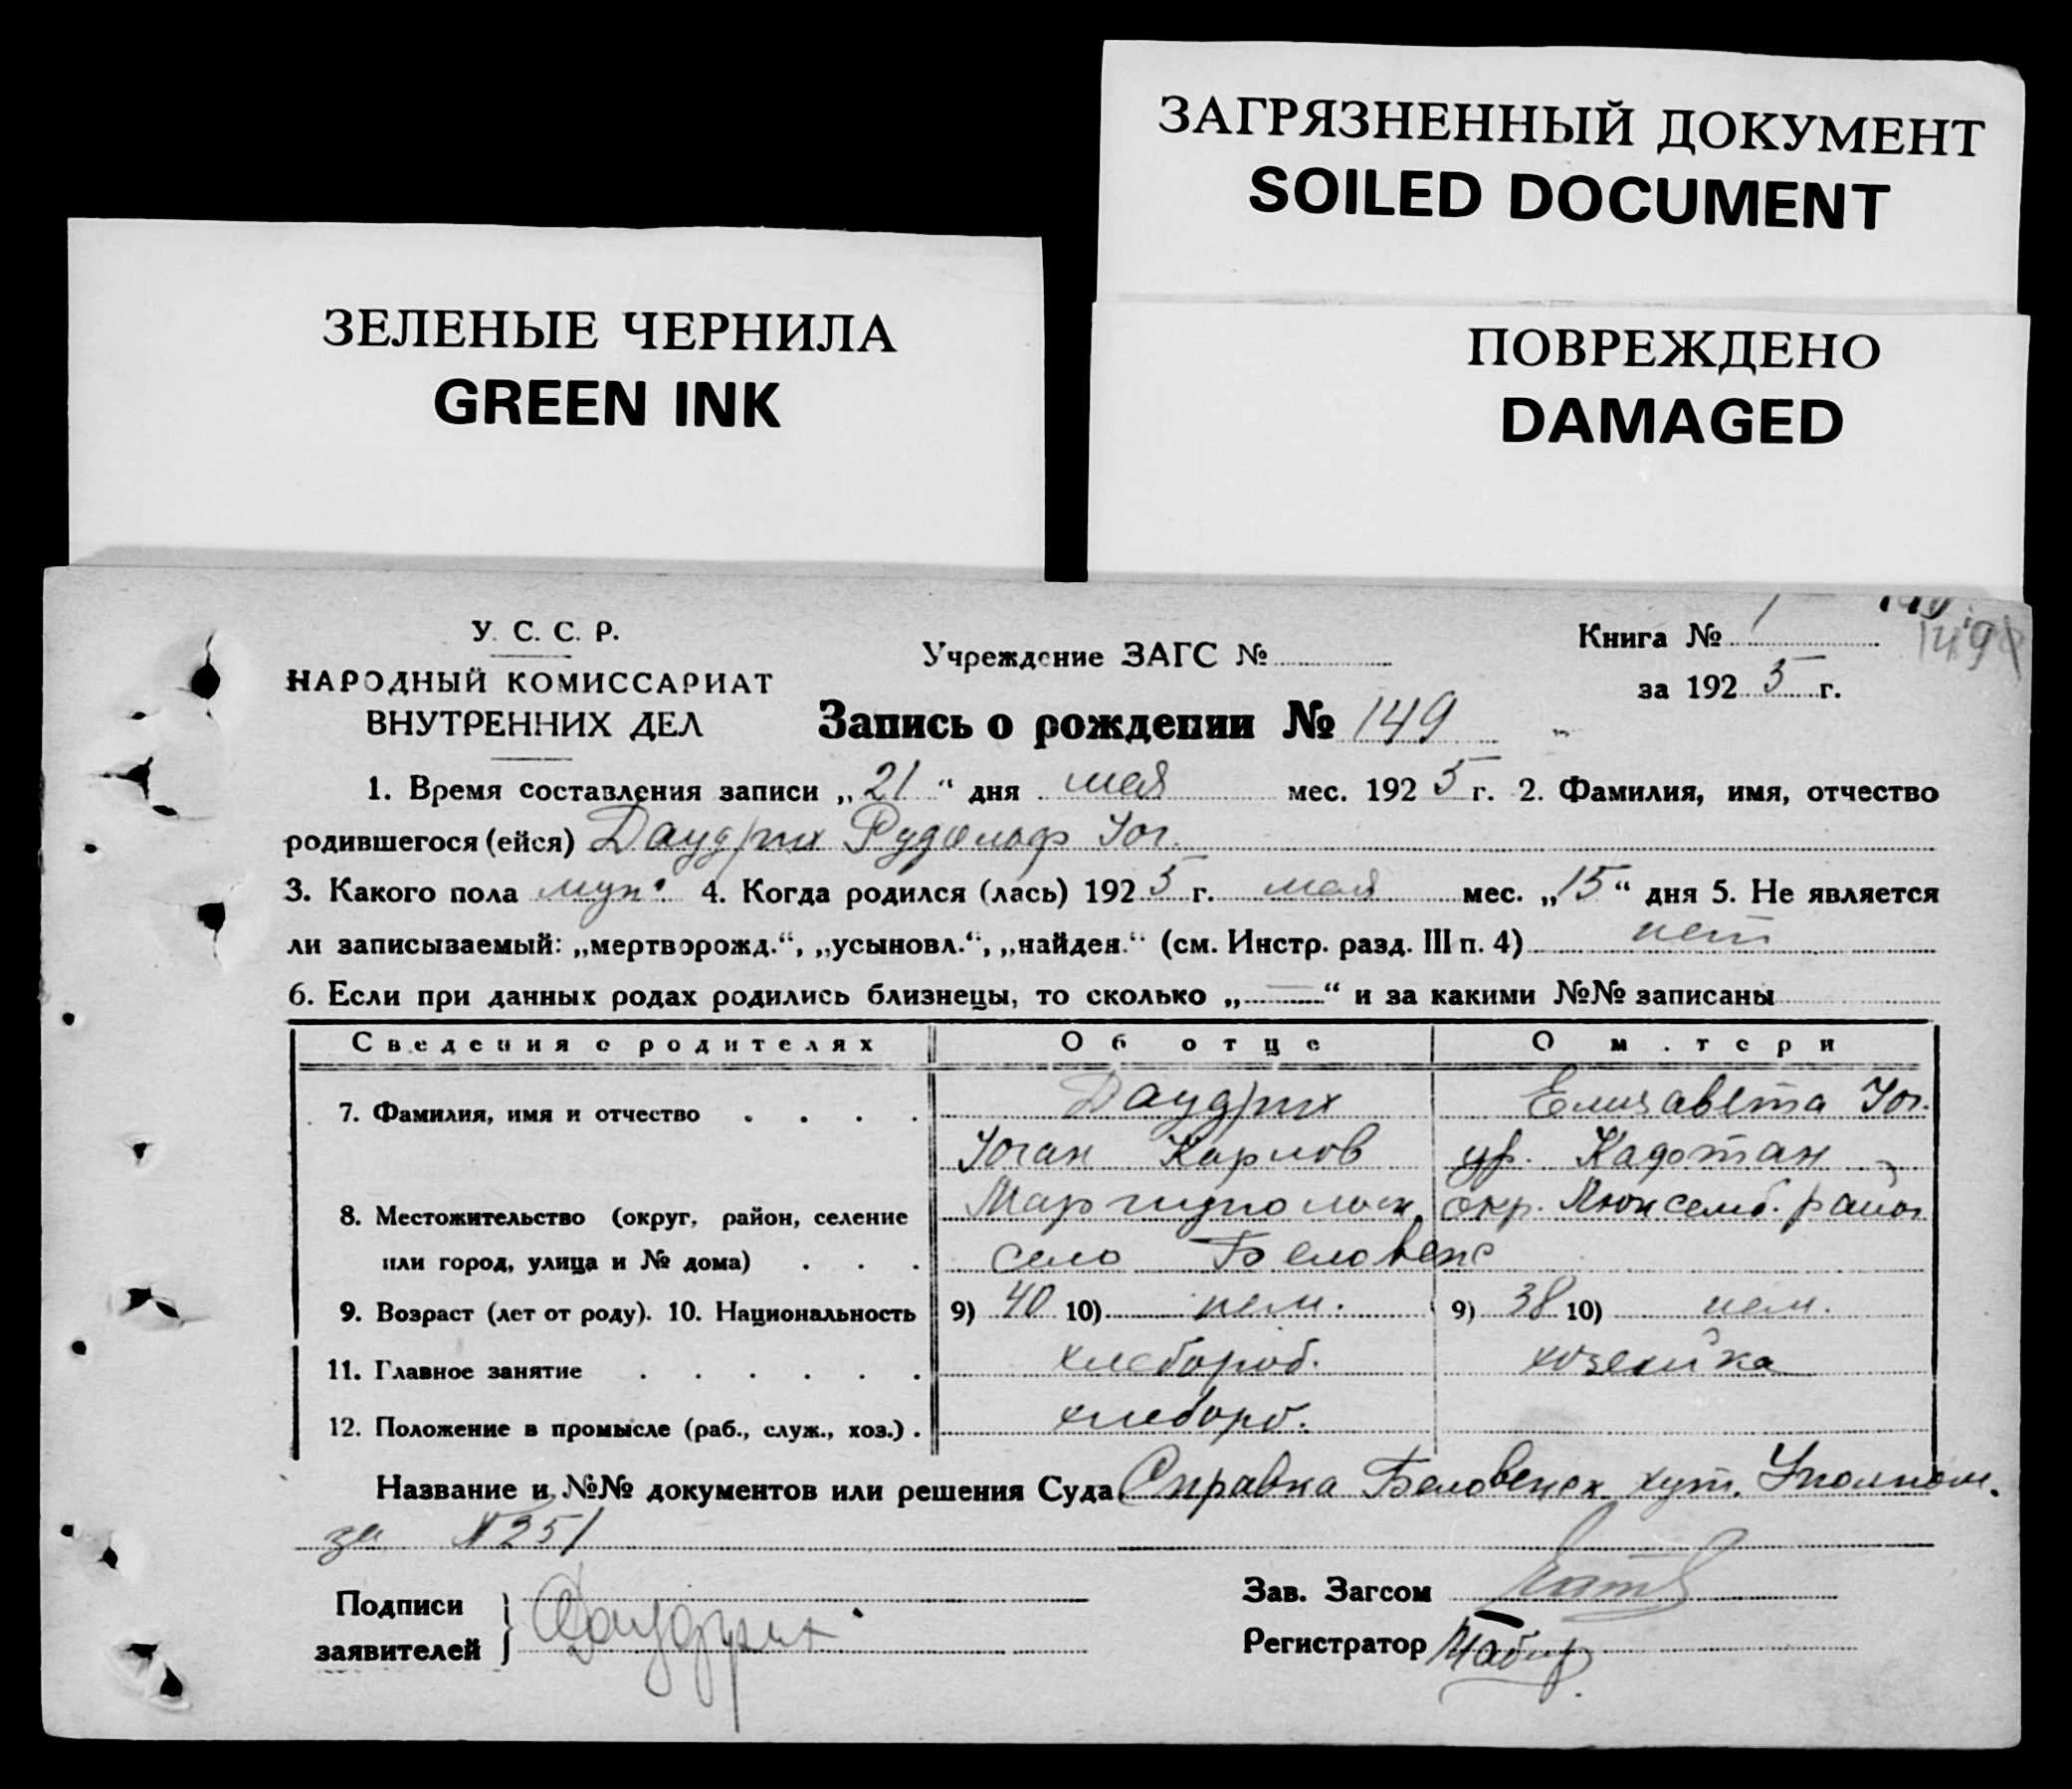 ЗАГРЯЗНЕННЫЙ ДОКУМЕНТ
SOILED DOCUMENT
ЗЕЛЕНЫЕ ЧЕРНИЛА
GREEN INK
ПОВРЕЖДЕНО
DAMAGED
У. С. С. Р.
НАРОДНЫЙ КОМИССАРИАТ
ВНУТРЕННИХ ДЕЛ
Учреждение ЗАГС №
Книга № 1
149
за 1925 г.
Запись о рождении № 149
1. Время составления записи „21“ дня мая мес. 1925 г. 2. Фамилия, имя, отчество
родившегося (ейся) Даудрих Рудольф Иог.
3. Какого пола муж. 4. Когда родился (лась) 1925 г. мая мес. „15“ дня 5. Не является
ли записываемый: „мертворожд.“, „усыновл.“, „найден.“ (см. Инстр. разд. III п. 4) нет
6. Если при данных родах родились близнецы, то сколько „—“ и за какими №№ записаны
Сведения о родителях Об отце О матери
7. Фамилия, имя и отчество Даудрих Елизавета Иог.
Иоган Карлов ур. Кадотан
8. Местожительство (округ, район, селение Мариупольск. окр. Люксемб. район
или город, улица и № дома) село Беловеж
9. Возраст (лет от роду). 10. Национальность 9) 40 10) нем. 9) 38 10) нем.
11. Главное занятие хлебороб. хозяйка
12. Положение в промысле (раб., служ., хоз.) хлебороб.
Название и №№ документов или решения Суда Справка Беловежск. хут. Уполном.
за № 251
Подписи
заявителей Даудрих
Зав. Загсом
Регистратор